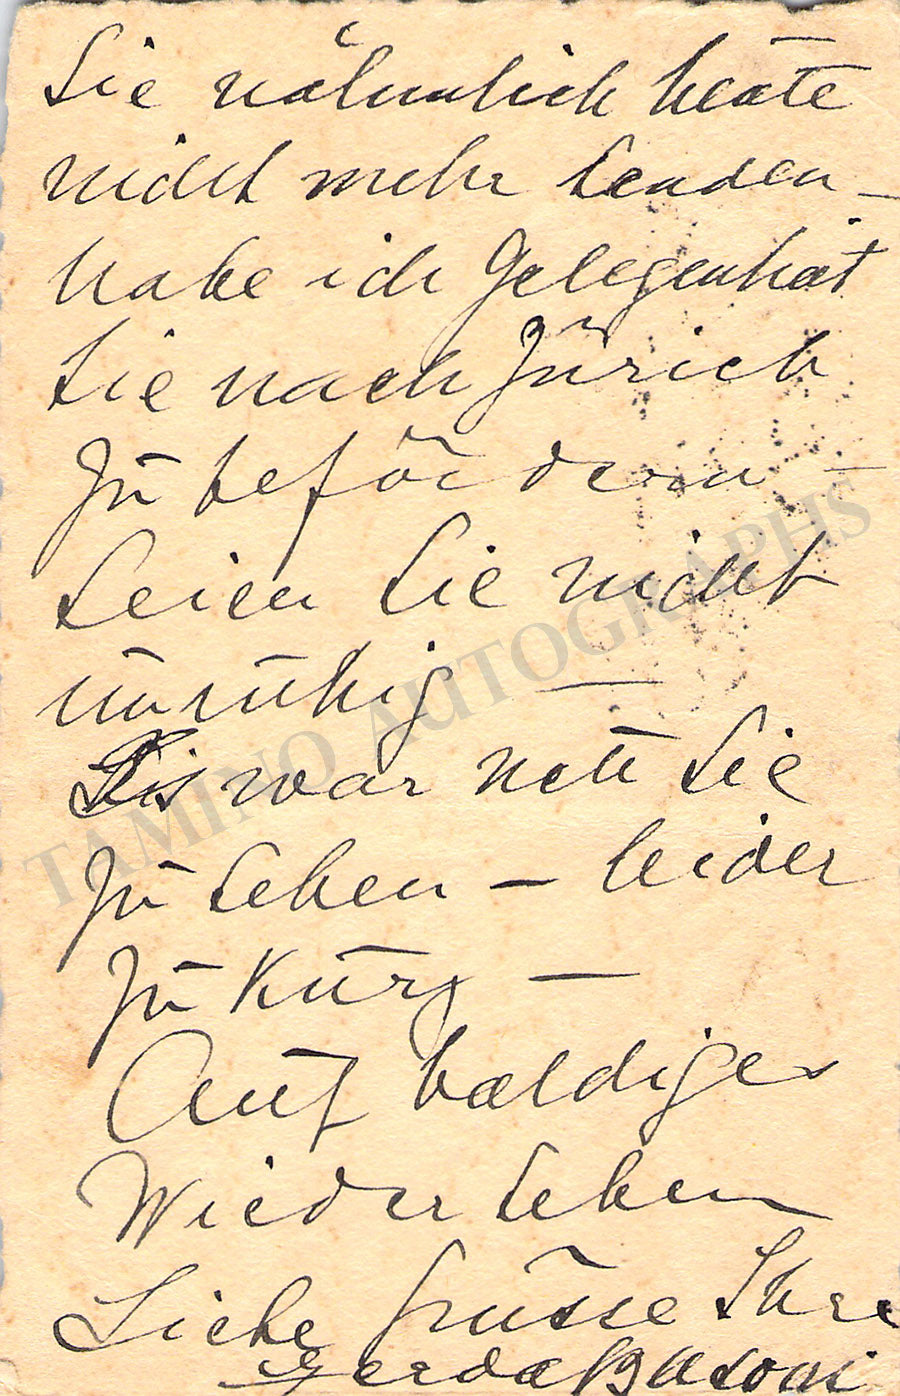 Sie nämlich heute
nicht mehr senden –
habe ich Gelegenheit
Sie nach Zürich
zu befördern –
Seien Sie nicht
unruhig –
Es war nett Sie
zu sehen – leider
zu kurz –
Auf baldiges
Wiedersehen
Liebe Grüsse Ihre
Gerda Busoni
TAMINO AUTOGRAPHS